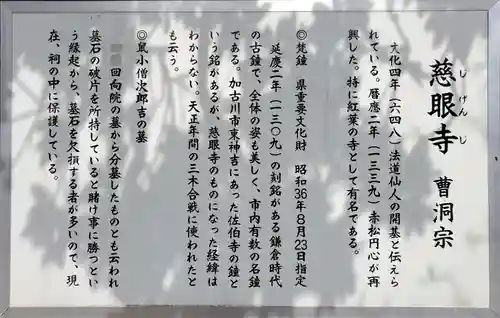 慈眼寺 曹洞宗
じげんじ
文化四年(六四八)法道仙人の開基と伝えら
れている。暦応二年(一三三九)赤松円心が再
興した。特に紅葉の寺として有名である。
◎梵鐘 県重要文化財 昭和36年8月23日指定
延慶二年(一三〇九)の刻銘がある鎌倉時代
の古鐘で、全体の姿も美しく、市内有数の名鐘
である。加古川市東神吉にあった佐伯寺の鐘と
いう銘があるが、慈眼寺のものになった経緯は
わからない。天正年間の三木合戦に使われたと
も云う。
◎鼠小僧次郎吉の墓
回向院の墓から分墓したものとも云われ
墓石の破片を所持していると賭け事に勝つとい
う縁起から、墓石を欠損する者が多いので、現
在、祠の中に保護している。